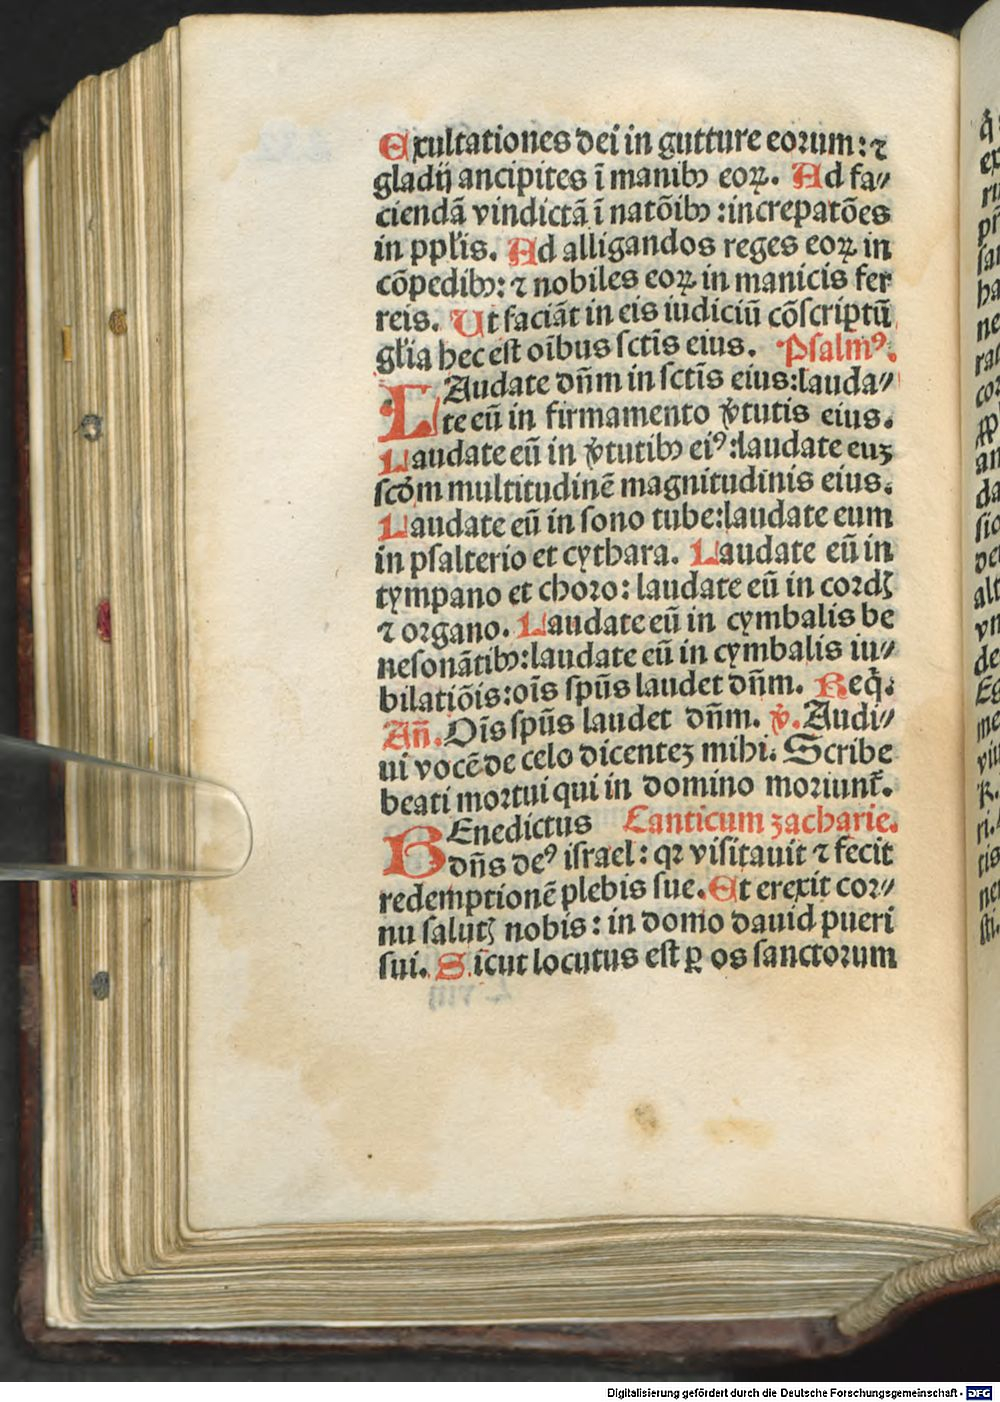 Exultationes dei in gutture eoꝛum: ⁊
gladij ancipites ī manibꝰ eoꝝ. Ad fa⸗
ciendā vindictā ī natōibꝰ: increpatōes
in ppl̓is. Ad alligandos reges eoꝝ in
cōpedibꝰ: ⁊ nobiles eoꝝ in manicis fer
reis. Ut faciāt in eis iudiciū cōſcriptū
gl̓ia hec eſt oībus ſctīs eius. Pſalmꝰ.
LAudate dn̄m in ſctīs eius: lauda⸗
te eū in firmamento v̓tutis eius.
Laudate eū in v̓tutibꝰ eiꝰ: laudate euꝫ
ſcd̓m multitudinē magnitudinis eius.
Laudate eū in ſono tube: laudate eum
in pſalterio et cythara. Laudate eū in
tympano et choꝛo: laudate eū in coꝛdꝭ
⁊ oꝛgano. Laudate eū in cymbalis be
neſonātibꝰ: laudate eū in cymbalis iu⸗
bilatiōis: oīs ſpūs laudet dn̄m. Req̄.
An̄. Oīs ſpūs laudet dn̄m. v̓. Audi⸗
ui vocē de celo dicenteꝫ mihi. Scribe
beati moꝛtui qui in domino moꝛiunt̓.
BEnedictus Canticum zacharie.
dn̄s deꝰ iſrael: qꝛ viſitauit ⁊ fecit
redemptionē plebis ſue. Et erexit coꝛ⸗
nu ſalutꝭ nobis: in domo dauid pueri
ſui. Sicut locutus eſt ꝑ os ſanctoꝛum
Digitalisierung gefördert durch die Deutsche Forschungsgemeinschaft - DFG